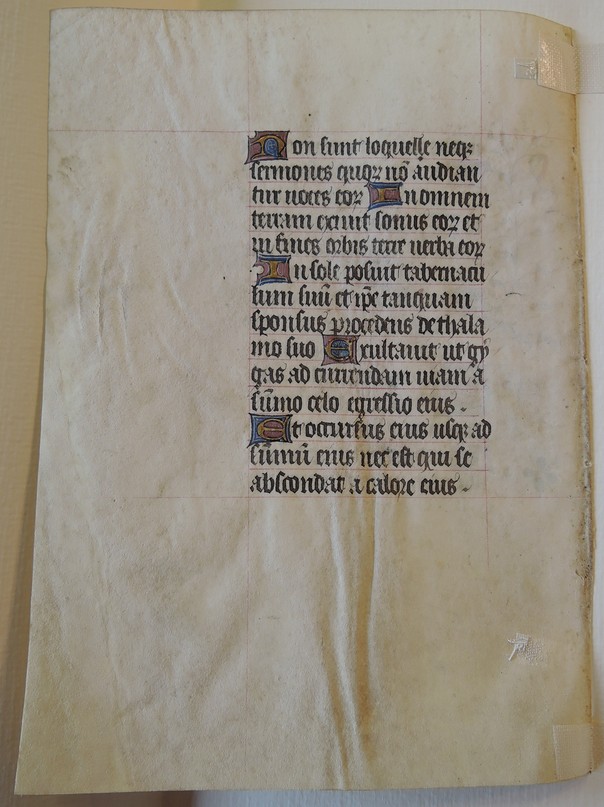 Non sunt loquelle neqꝫ
sermones quoꝝ nō audian
tur uoces eoꝝ In omnem
terram exiuit sonus eoꝝ et
in fines orbis terre uerba eoꝝ
In sole posuit tabernacu
lum suū et ip̄e tanquam
sponsus procedens de thala
mo suo Exultauit ut gy
gas ad currendam uiam a
sūmo celo egressio eius .
Et occursus eius usqꝫ ad
sūmū eius nec est qui se
abscondat a calore eius .